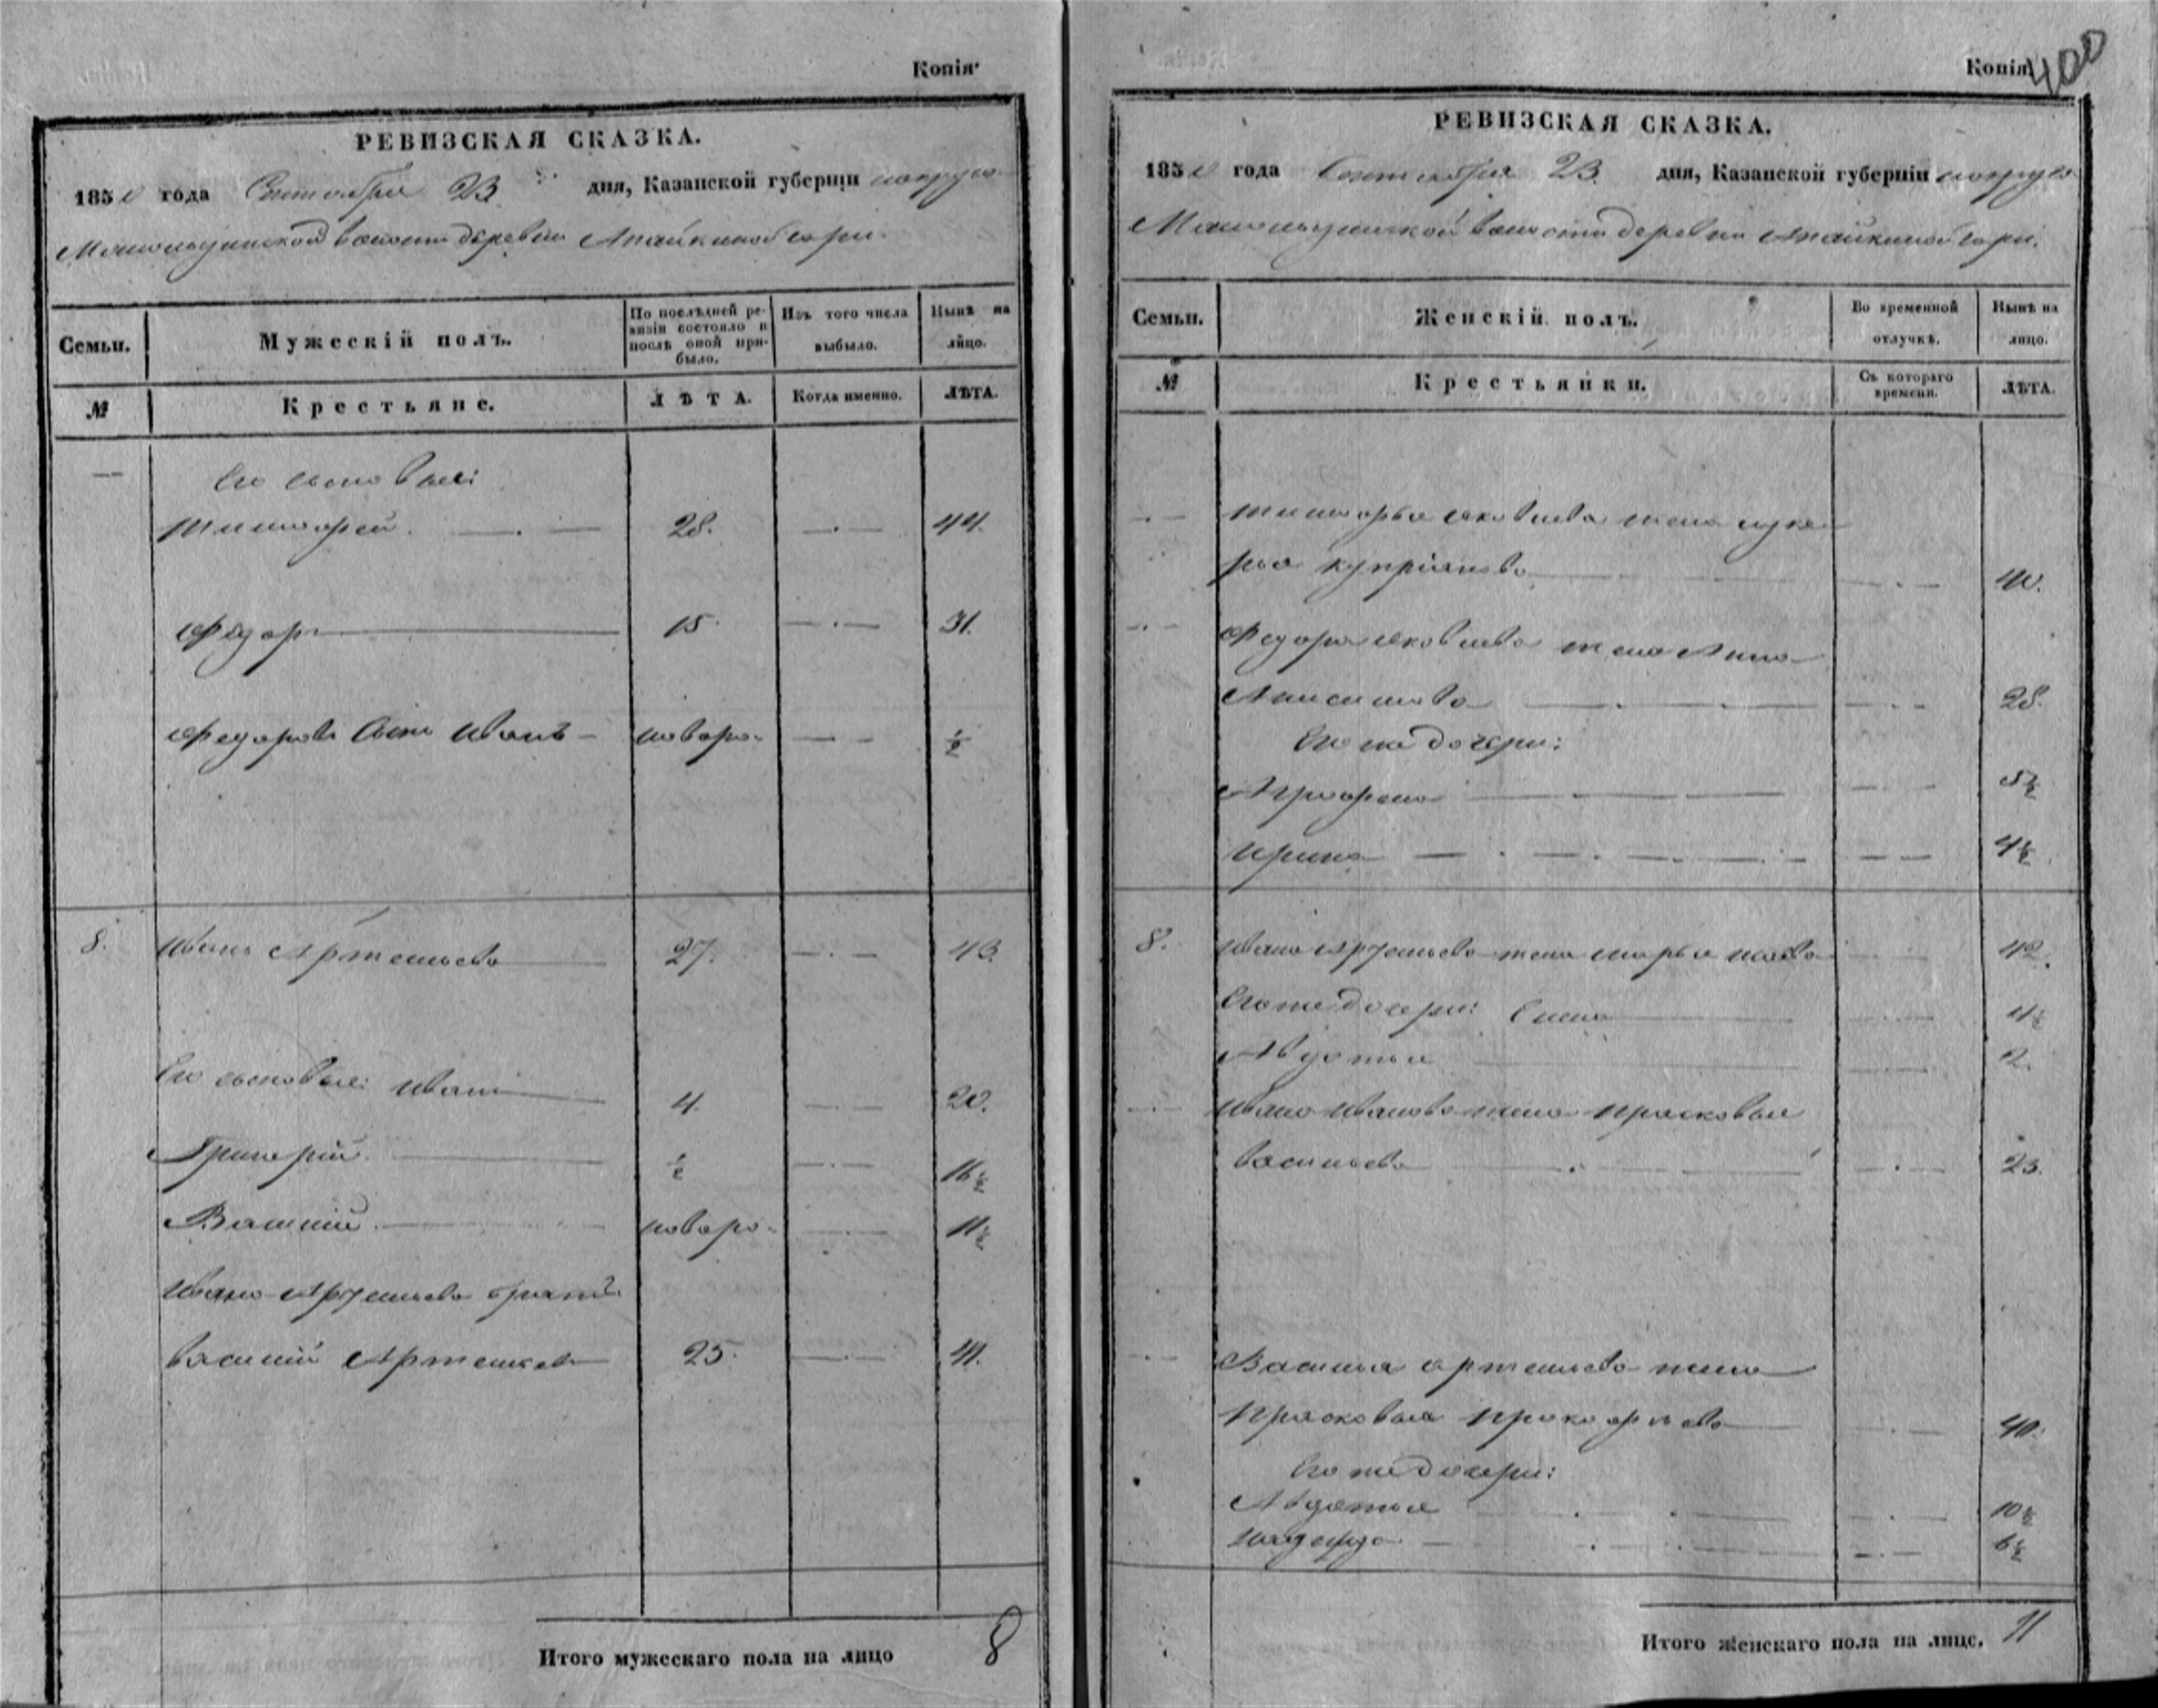 Копія
РЕВИЗСКАЯ СКАЗКА.
1850 года Сентября 23 дня, Казанской губерніи
волости деревни Апайкиной гари.
Семьи.
Мужескій полъ.
По послѣдней ревизіи состояло и послѣ оной прибыло.
Изъ того числа выбыло.
Нынѣ на лицо.
№
Крестьяне.
ЛѢТА.
Когда именно.
ЛѢТА.
Его сыновья:
Тимофей 28. 44.
Федоръ 15 31.
Федоровъ сынъ Иванъ новоро. ½
8. Иванъ Артемьевъ 27. 43.
Его сыновья: Иванъ 4 20.
Григорій ½ 16½
Василій новоро. 11½
Ивана Артемьева братъ
Василій Артемьевъ 25. 41.
Итого мужескаго пола на лицо 8
Копія
400
РЕВИЗСКАЯ СКАЗКА.
1850 года Сентября 23. дня, Казанской губерніи
волости деревни Апайкиной гари.
Семьи.
Женскій полъ.
Во временной отлучкѣ.
Нынѣ на лицо.
№
Крестьянки.
Съ котораго времени.
ЛѢТА.
Тимофея Яковлева жена Луке-
рья Купріянова 40.
Федора Яковлева жена Анна
Анисимова 28.
Его же дочери:
Афросинья 8½
Ирина 4½
8. Ивана Артемьева жена Марья 42.
Его же дочери: Елена
Авдотья 2.
Ивана Иванова жена Прасковья
Васильева 23.
Василья Артемьева жена
Прасковья Прокофьева 40.
Его же дочери:
Авдотья 10½
Надежда 6½
Итого женскаго пола на лице. 11